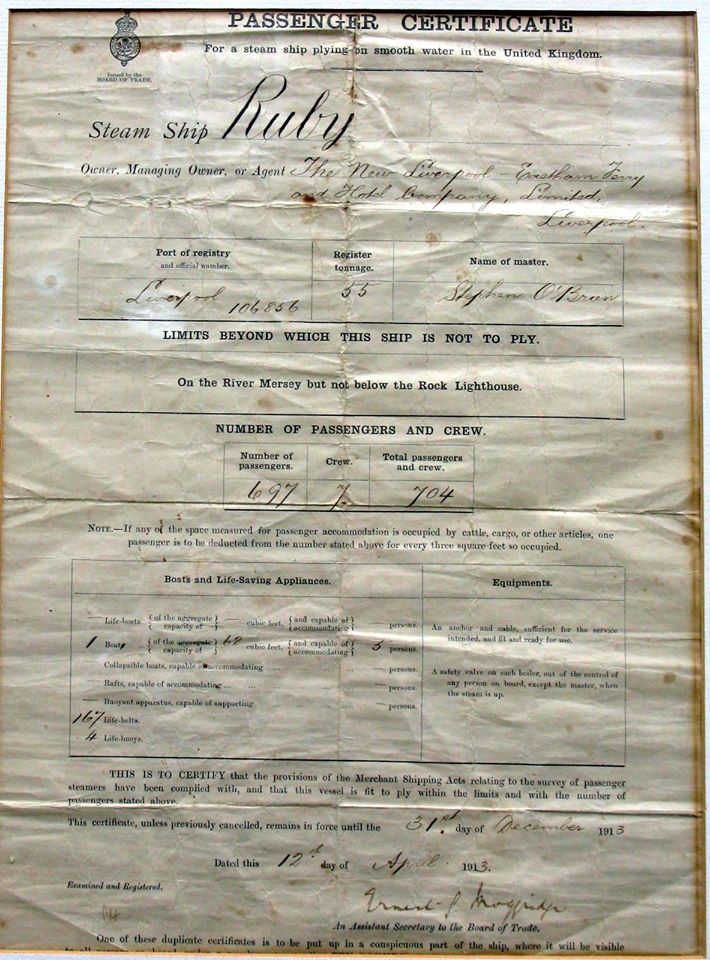 PASSENGER CERTIFICATE
For a steam ship plying on smooth water in the United Kingdom.
Issued by the
BOARD OF TRADE.
Steam Ship Ruby
Owner, Managing Owner, or Agent The New Liverpool - Eastham Ferry
and Hotel Company, Limited,
Liverpool.
Port of registry
and official number.
Register
tonnage.
Name of master.
Liverpool 106856
55
Stephen O'Brien
LIMITS BEYOND WHICH THIS SHIP IS NOT TO PLY.
On the River Mersey but not below the Rock Lighthouse.
NUMBER OF PASSENGERS AND CREW.
Number of
passengers.
Crew.
Total passengers
and crew.
697
7
704
NOTE.—If any of the space measured for passenger accommodation is occupied by cattle, cargo, or other articles, one
passenger is to be deducted from the number stated above for every three square feet so occupied.
Boats and Life-Saving Appliances.
— Life-boats {of the aggregate capacity of} — cubic feet, {and capable of accommodating} — persons.
1 Boat {of the aggregate capacity of} 62 cubic feet, {and capable of accommodating} 5 persons.
Collapsible boats, capable of accommodating ... — persons.
Rafts, capable of accommodating ... ... ... ... — persons.
— Buoyant apparatus, capable of supporting ... ... ... — persons.
167 Life-belts.
4 Life-buoys.
Equipments.
An anchor and cable, sufficient for the service
intended, and fit and ready for use.
A safety valve on each boiler, out of the control of
any person on board, except the master, when
the steam is up.
THIS IS TO CERTIFY that the provisions of the Merchant Shipping Acts relating to the survey of passenger
steamers have been complied with, and that this vessel is fit to ply within the limits and with the number of
passengers stated above.
This certificate, unless previously cancelled, remains in force until the 31st day of December 1913
Dated this 12th day of April 1913.
Examined and Registered.
Ernest J Moggridge
An Assistant Secretary to the Board of Trade.
One of these duplicate certificates is to be put up in a conspicuous part of the ship, where it will be visible